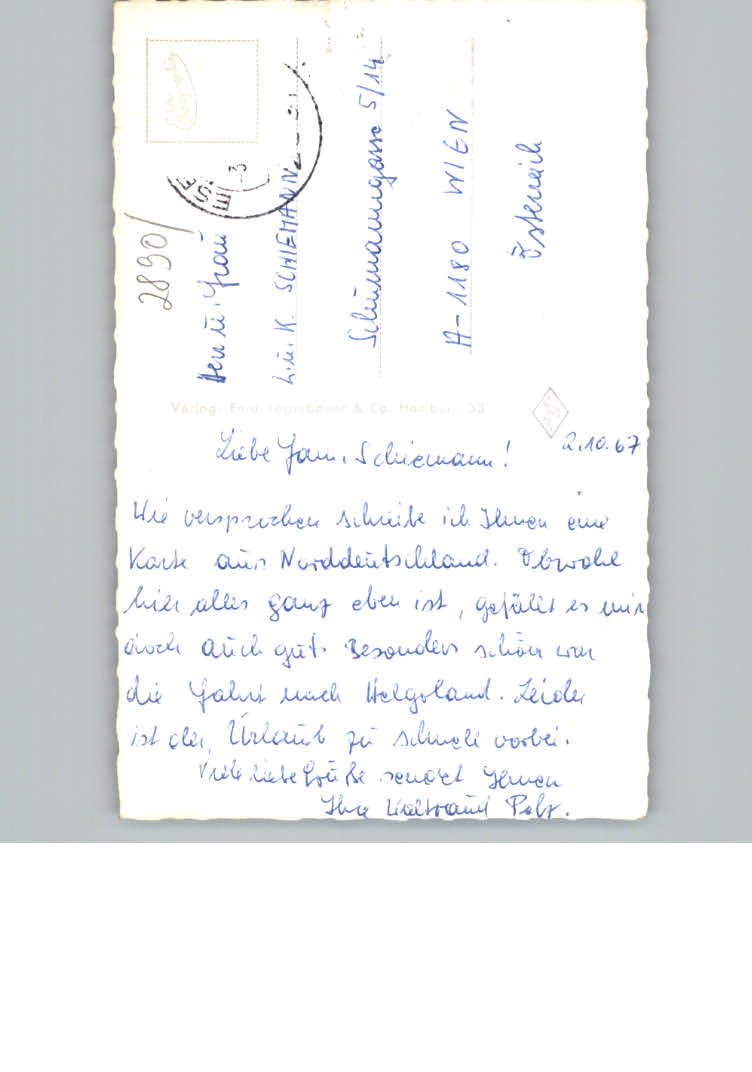 2890/
Herrn u. Frau
L. u. K. SCHIEMANN
Schumanngasse 5/14
A-1180 WIEN
Österreich
Verlag: Ferd. Lagerbauer & Co. Hamburg 33
2.10.67
Liebe Fam. Schiemann!
Wie versprochen schreibe ich Ihnen eine
Karte aus Norddeutschland. Obwohl
hier alles ganz eben ist, gefällt es mir
doch auch gut. Besonders schön war
die Fahrt nach Helgoland. Leider
ist der Urlaub zu schnell vorbei.
Viele liebe Grüße sendet Ihnen
Ihre Waltraud Polz.